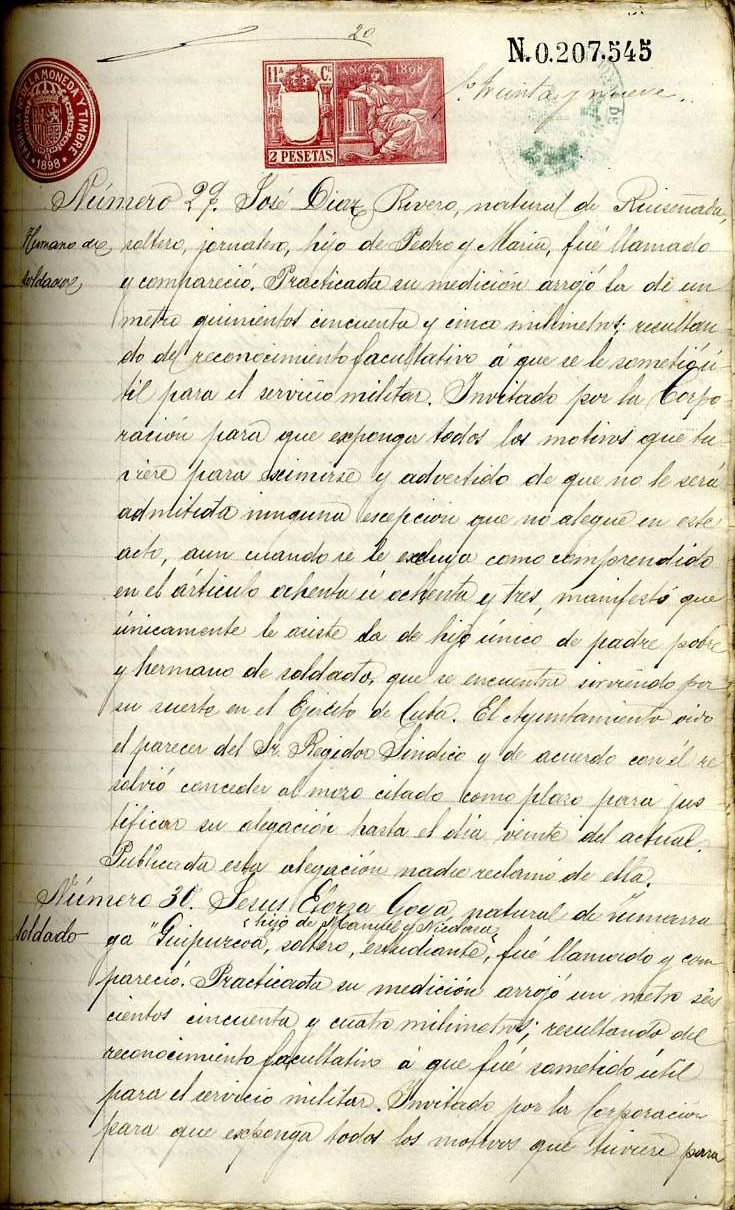 20
N.0.207,545
11ª C.
AÑO 1898
2 PESETAS
FABRICA Nal DE LA MONEDA Y TIMBRE
1898
Treinta y nueve
Número 29. José Diaz Rivero, natural de Ruiseñada,
Hermano de
soldado
soltero, jornalero, hijo de Pedro y Maria, fué llamado
y compareció. Practicada su medición arrojó la de un
metro quinientos cincuenta y cinco milimetros; resultan-
do del reconocimiento facultativo á que se le sometió ú-
til para el servicio militar. Invitado por la Corpo-
ración para que exponga todos los motivos que tu-
viere para eximirse y advertido de que no le será
admitida ninguna escepción que no alegue en este
acto, aun cuando se le excluya como comprendido
en el artículo ochenta ú ochenta y tres, manifestó que
únicamente le asiste la de hijo único de padre pobre
y hermano de soldado, que se encuentra sirviendo por
su suerte en el Ejército de Cuba. El Ayuntamiento oido
el parecer del Sr. Regidor Sindico y de acuerdo con él re
solvió conceder al mozo citado como plazo para jus-
tificar su alegación hasta el día veinte del actual.
Publicada esta alegación nadie reclamó de ella.
Número 30. Jesus Elorza Goya, natural de Zumarra
soldado
hijo de Manuel y
ga "Guipuzcoa, soltero, estudiante, fué llamado y com
pareció. Practicada su medición arrojó un metro seis
cientos cincuenta y cuatro milimetros; resultando del
reconocimiento facultativo á que fué sometido útil
para el servicio militar. Invitado por la Corporación
para que exponga todos los motivos que tuviere para